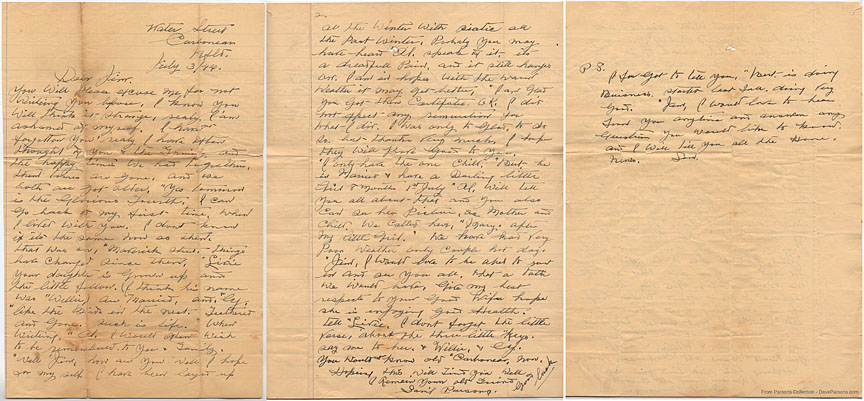 Water Street
Carbonear
Nfld.
July 3/44.
Dear Jim.
You Will Please excuse me, for not
Writing You before, I know you
Will think it strange, realy, I am
ashamed of myself. I have
forgotten You realy I have often
thought of You & We and
the happy times We had together,
them times are gone, and we
both are got older, "Yes tomorrow
is the Glorious Twelth, I can
Go back to my first time, when
I World With You. I dont know
if its the same now as then.
that Was on, Maverick street. Things
have Changed since then, "Lizie
Your daughter is Grown up and
the little fellow. (I think his name
Was "Willie) are Married, and
"like the birds in the nest. Feathered
and Gone. Such is life." When
Writing, "Al" I would often Wish
to be remembered to You & Family.
"Well Jim, how are You Well I hope
for my self I have been layed up
2
all the Winter With Siatic all
the Past Winter, Probaly You may
have heard "Al. speak of it, its
a dreadfull Pain, and it still hangs
on. I am in hopes with the warm
Weather it may get better, "I am Glad
you Got them Certifcate O.K, I did
not expect any renumeration for
what I did. I Was only to Glad, to do
so. but thanks very much, I hope
they Will prove Good to You.
"I only have the one Child. "Bert he
is Married & have a Darling little
Girl 9 Months 1st July "Al, Will tell
You all about this and You also
Can see her Picture, as Mother and
Child, We Called her, "Mary. after
my little Girl. We have had very
Poor Weather only Couple hot day.
"Jim, I Would love to be able to
in and see You all. What a talk
We Would have, Give my best
respects to Your Good Wife hope
she is enjoying Good Health.
tell "Lizie. I dont forget the little
Verse, about the three little Keys.
say me to her & Willie, &
You Wouldnt know old "Carbonear Now.
Hoping this Will find You Well
I Remain Your old Friend
Parsons.
P S.
I for Got to tell you, "Bert is doing
Buisness. started last Jan, doing very
Good. "Jim, I Would love to hear
from You anytime and answer any
Question You would like to know.
and I Will tell you all the Home
News.
From Parsons Collection - DaveParsons.com